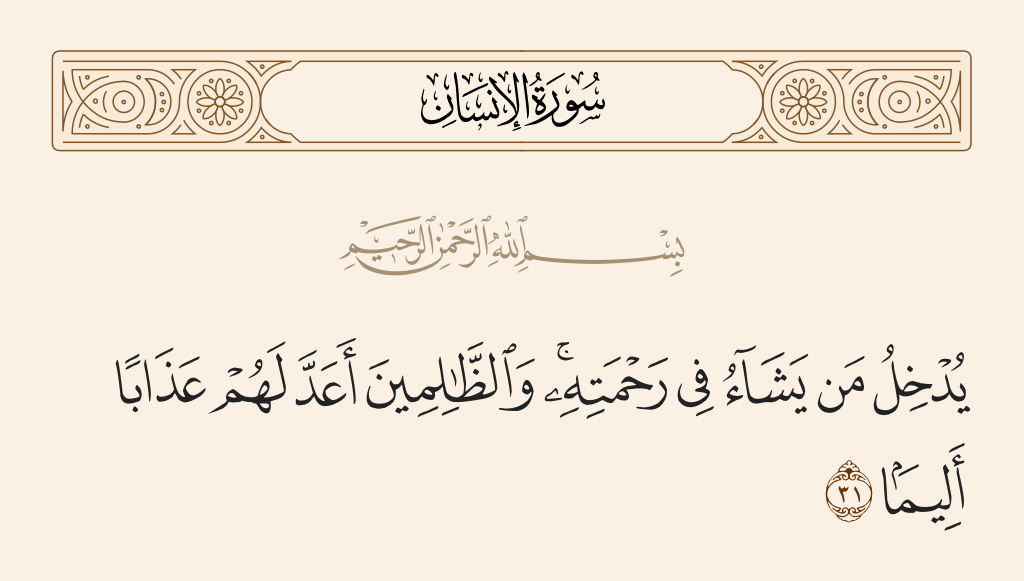 سُورَةُ الإِنسَانِ
بِسْمِ ٱللَّهِ ٱلرَّحْمَٰنِ ٱلرَّحِيمِ
يُدْخِلُ مَن يَشَآءُ فِى رَحْمَتِهِۦ ۚ وَٱلظَّٰلِمِينَ أَعَدَّ لَهُمْ عَذَابًا
أَلِيمًۢا ٣١